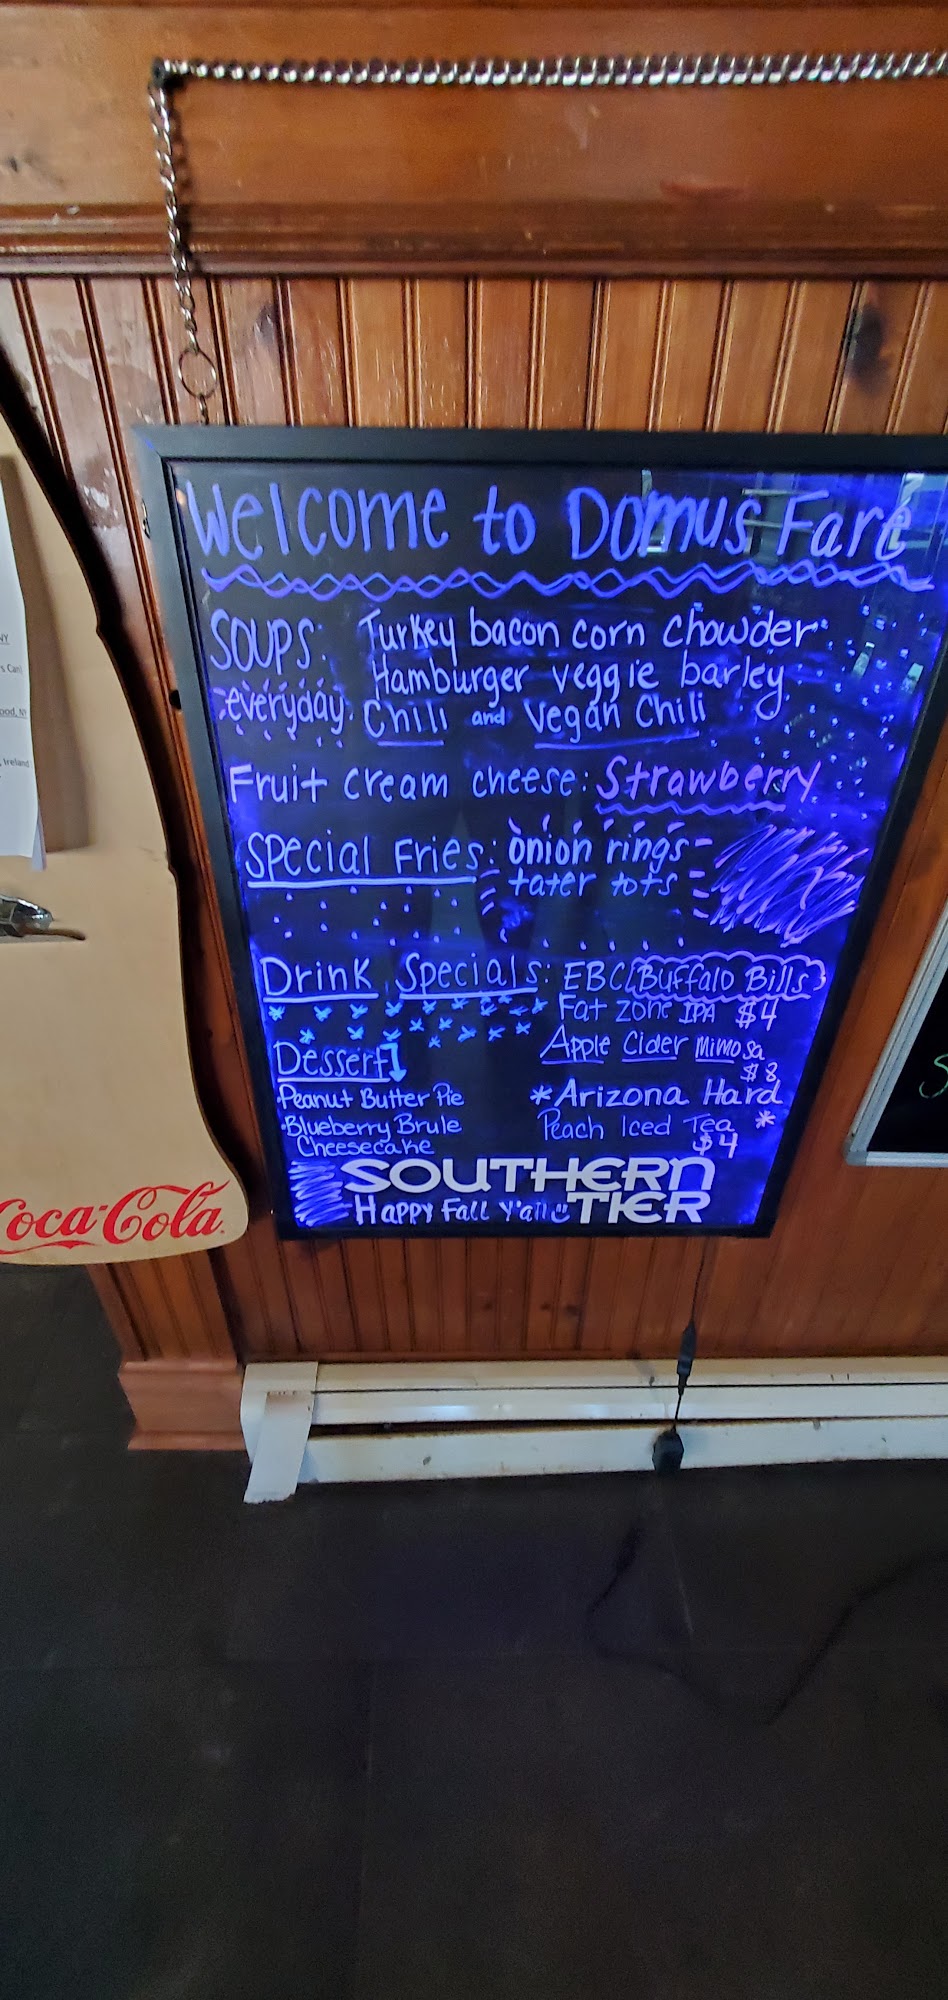 Welcome to Domus Fare
Soups: Turkey bacon corn chowder
Hamburger veggie barley
everyday Chili and Vegan Chili
Fruit cream cheese: Strawberry
Special Fries: onion rings
tater tots
Drink Specials: EBC/Buffalo Bills
Fat zone IPA $4
Apple Cider Mimosa
$8
Dessert
Peanut Butter Pie
Blueberry Brule
Cheesecake
*Arizona Hard
Peach Iced Tea *
$4
SOUTHERN
TIER
Happy Fall Y'all
Coca-Cola
NY
Ireland